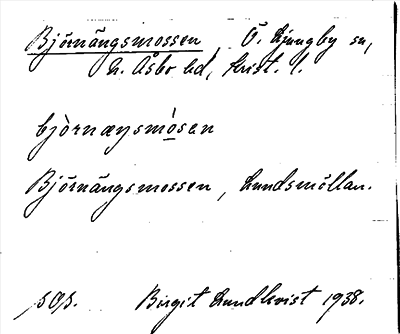 Björnängsmossen Ö. Ljungby sn,
N. Åsbo hd, Krist. l.
bjò̀rnæŋsmò̱sen
Björnängsmossen, Lundsmöllan.
Birgit Lundkvist 1938.